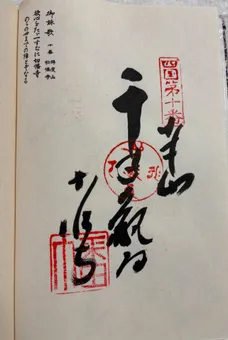 御詠歌 十番 得度山 切幡寺
欲心をただ一すぢに切幡寺
のちの世までの障りとぞなる
四国第十番
千手観音
切幡寺